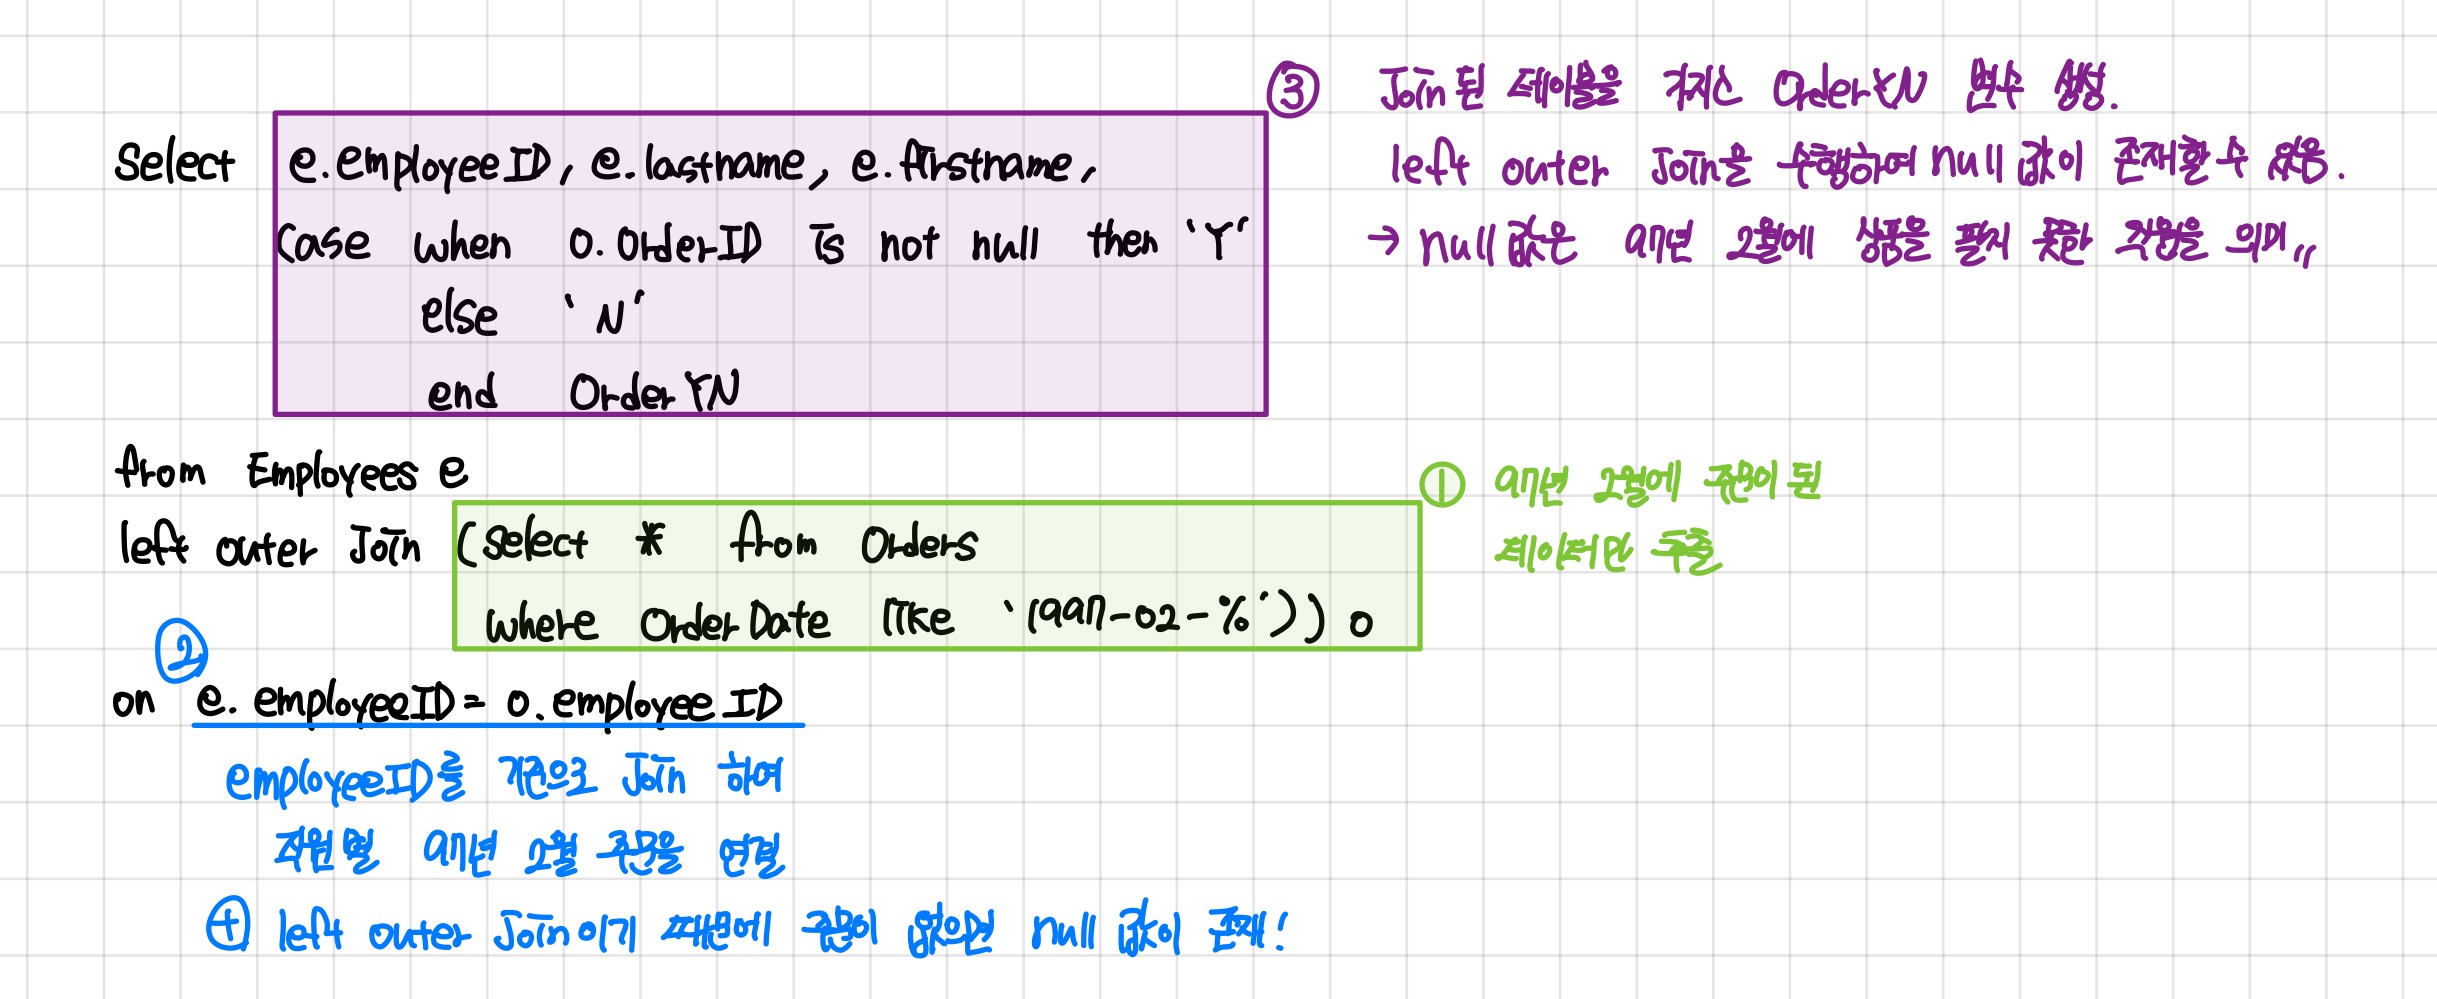 ③ Join 된 테이블을 가지고 OrderYN 변수 생성.
Select e.employeeID, e.lastname, e.firstname,
left outer Join을 수행하여 null 값이 존재할 수 있음.
Case when O.OrderID is not null then 'Y'
→ null 값은 97년 2월에 상품을 팔지 못한 직원을 의미,,
else 'N'
end OrderYN
from Employees e
① 97년 2월에 주문이 된
left outer Join (select * from Orders
데이터만 추출
where OrderDate like '1997-02-%')) o
②
on e.employeeID = o.employeeID
employeeID를 기준으로 Join 하여
직원별 97년 2월 주문을 연결
⊕ left outer Join이기 때문에 주문이 없으면 null 값이 존재!